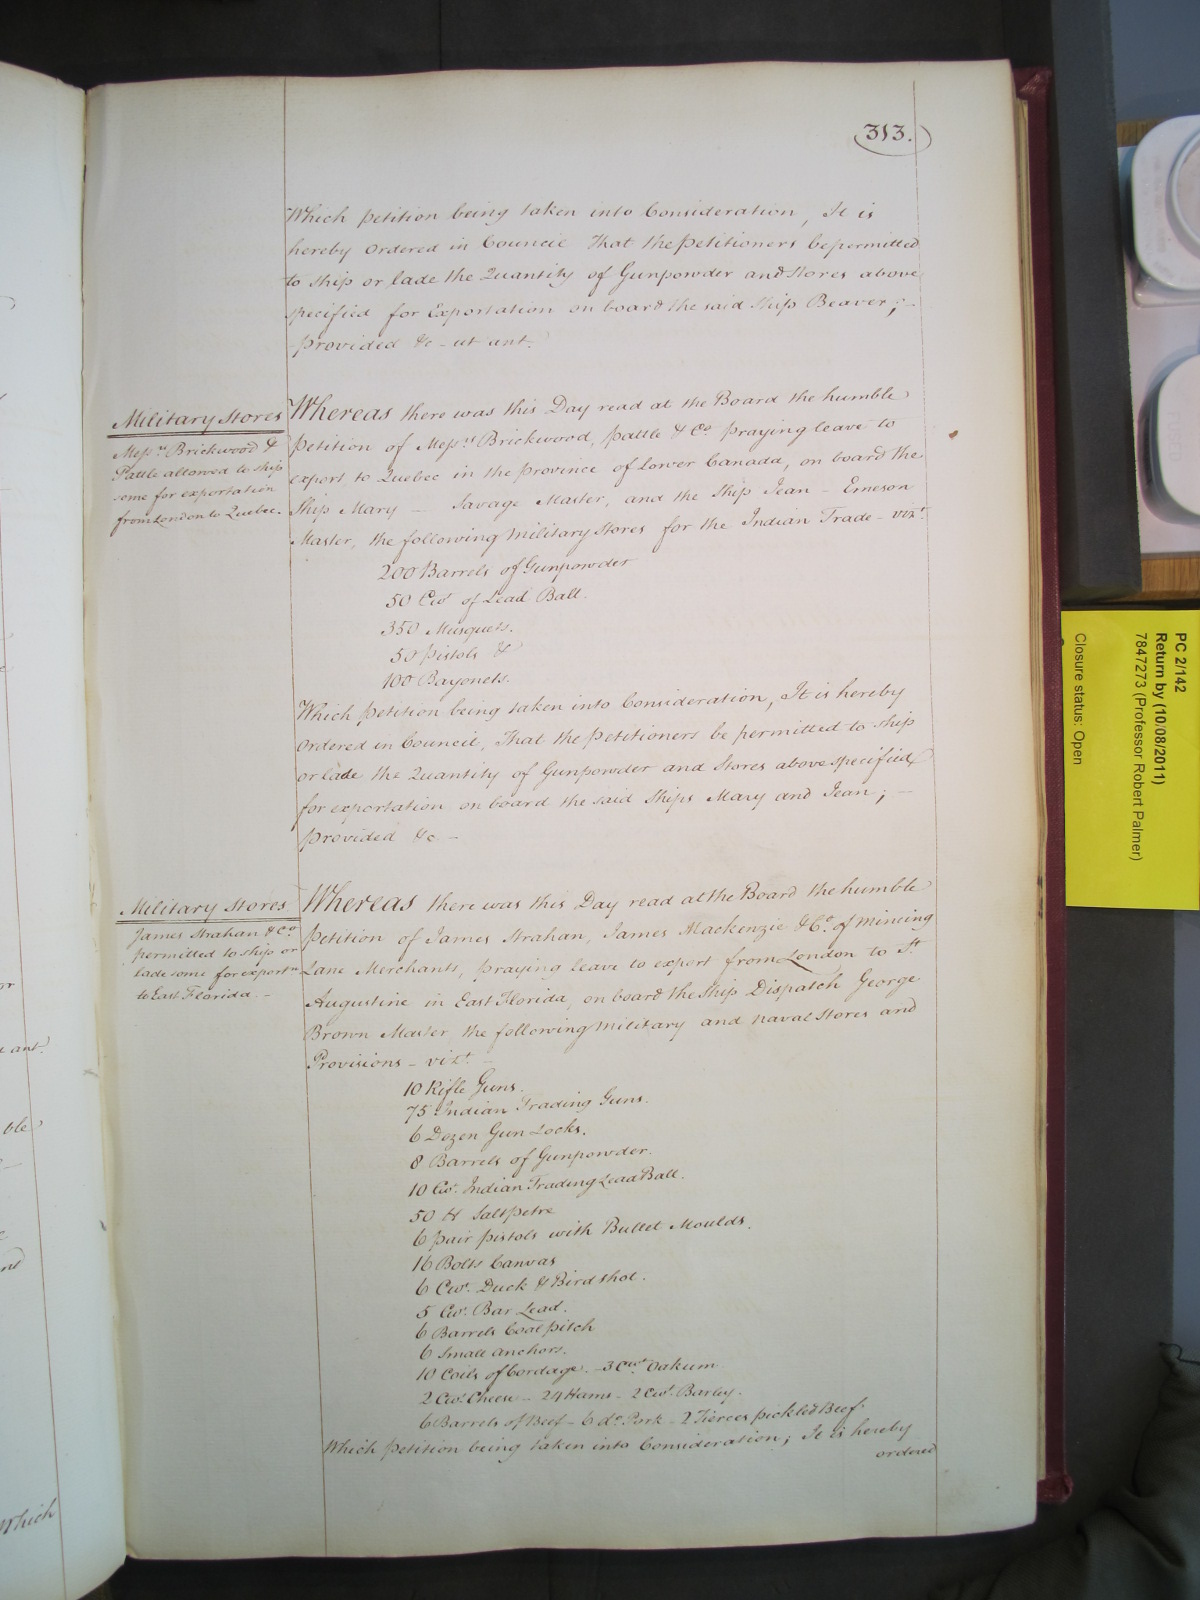 313.
Which petition being taken into Consideration, It is
hereby Ordered in Council That the Petitioners be permitted
to ship or lade the Quantity of Gunpowder and Stores above
specified for Exportation on board the said Ship Beaver; -
provided &c - ut ant.
Military Stores
Messrs. Brickwood &
Pattle allowed to ship
some for exportation
from London to Quebec.
Whereas there was this Day read at the Board the humble
Petition of Messrs. Brickwood, Pattle & Co. praying leave to
export to Quebec in the Province of Lower Canada, on board the
Ship Mary — Savage Master, and the Ship Jean - Emeson
Master, the following Military Stores for the Indian Trade - vizt.
200 Barrels of Gunpowder
50 Cwt. of Lead Ball.
350 Musquets.
50 Pistols &
100 Bayonets.
Which petition being taken into Consideration, It is hereby
Ordered in Council, That the Petitioners be permitted to ship
or lade the Quantity of Gunpowder and Stores above specified
for exportation on board the said Ships Mary and Jean; -
provided &c -
Military Stores.
James Strahan & Co.
permitted to ship or
lade some for exportn.
to East Florida. -
Whereas there was this Day read at the Board the humble
Petition of James Strahan, James Mackenzie & Co. of Mincing
Lane Merchants, praying leave to export from London to St.
Augustine in East Florida, on board the Ship Dispatch George
Brown Master the following Military and Naval Stores and
Provisions - vizt. -
10 Rifle Guns.
75 Indian Trading Guns.
6 Dozen Gun Locks.
8 Barrels of Gunpowder.
10 Cwt. Indian Trading Lead Ball.
50 lb Saltpetre
6 pair pistols with Bullet Moulds.
16 Bolts Canvas
6 Cwt. Duck & Bird shot.
5 Cwt. Bar Lead.
6 Barrels Coal pitch
6 Small anchors.
10 Coils of Cordage. - 3 Cwt. Oakum
2 Cwt. Cheese - 24 Hams - 2 Cwt. Barley.
6 Barrels of Beef - 6 do. Pork - 2 Tierces pickled Beef.
Which petition being taken into Consideration; It is hereby
ordered
ant.
ble
Which
PC 2/142
Return by (10/08/2011)
7847273 (Professor Robert Palmer)
Closure status: Open